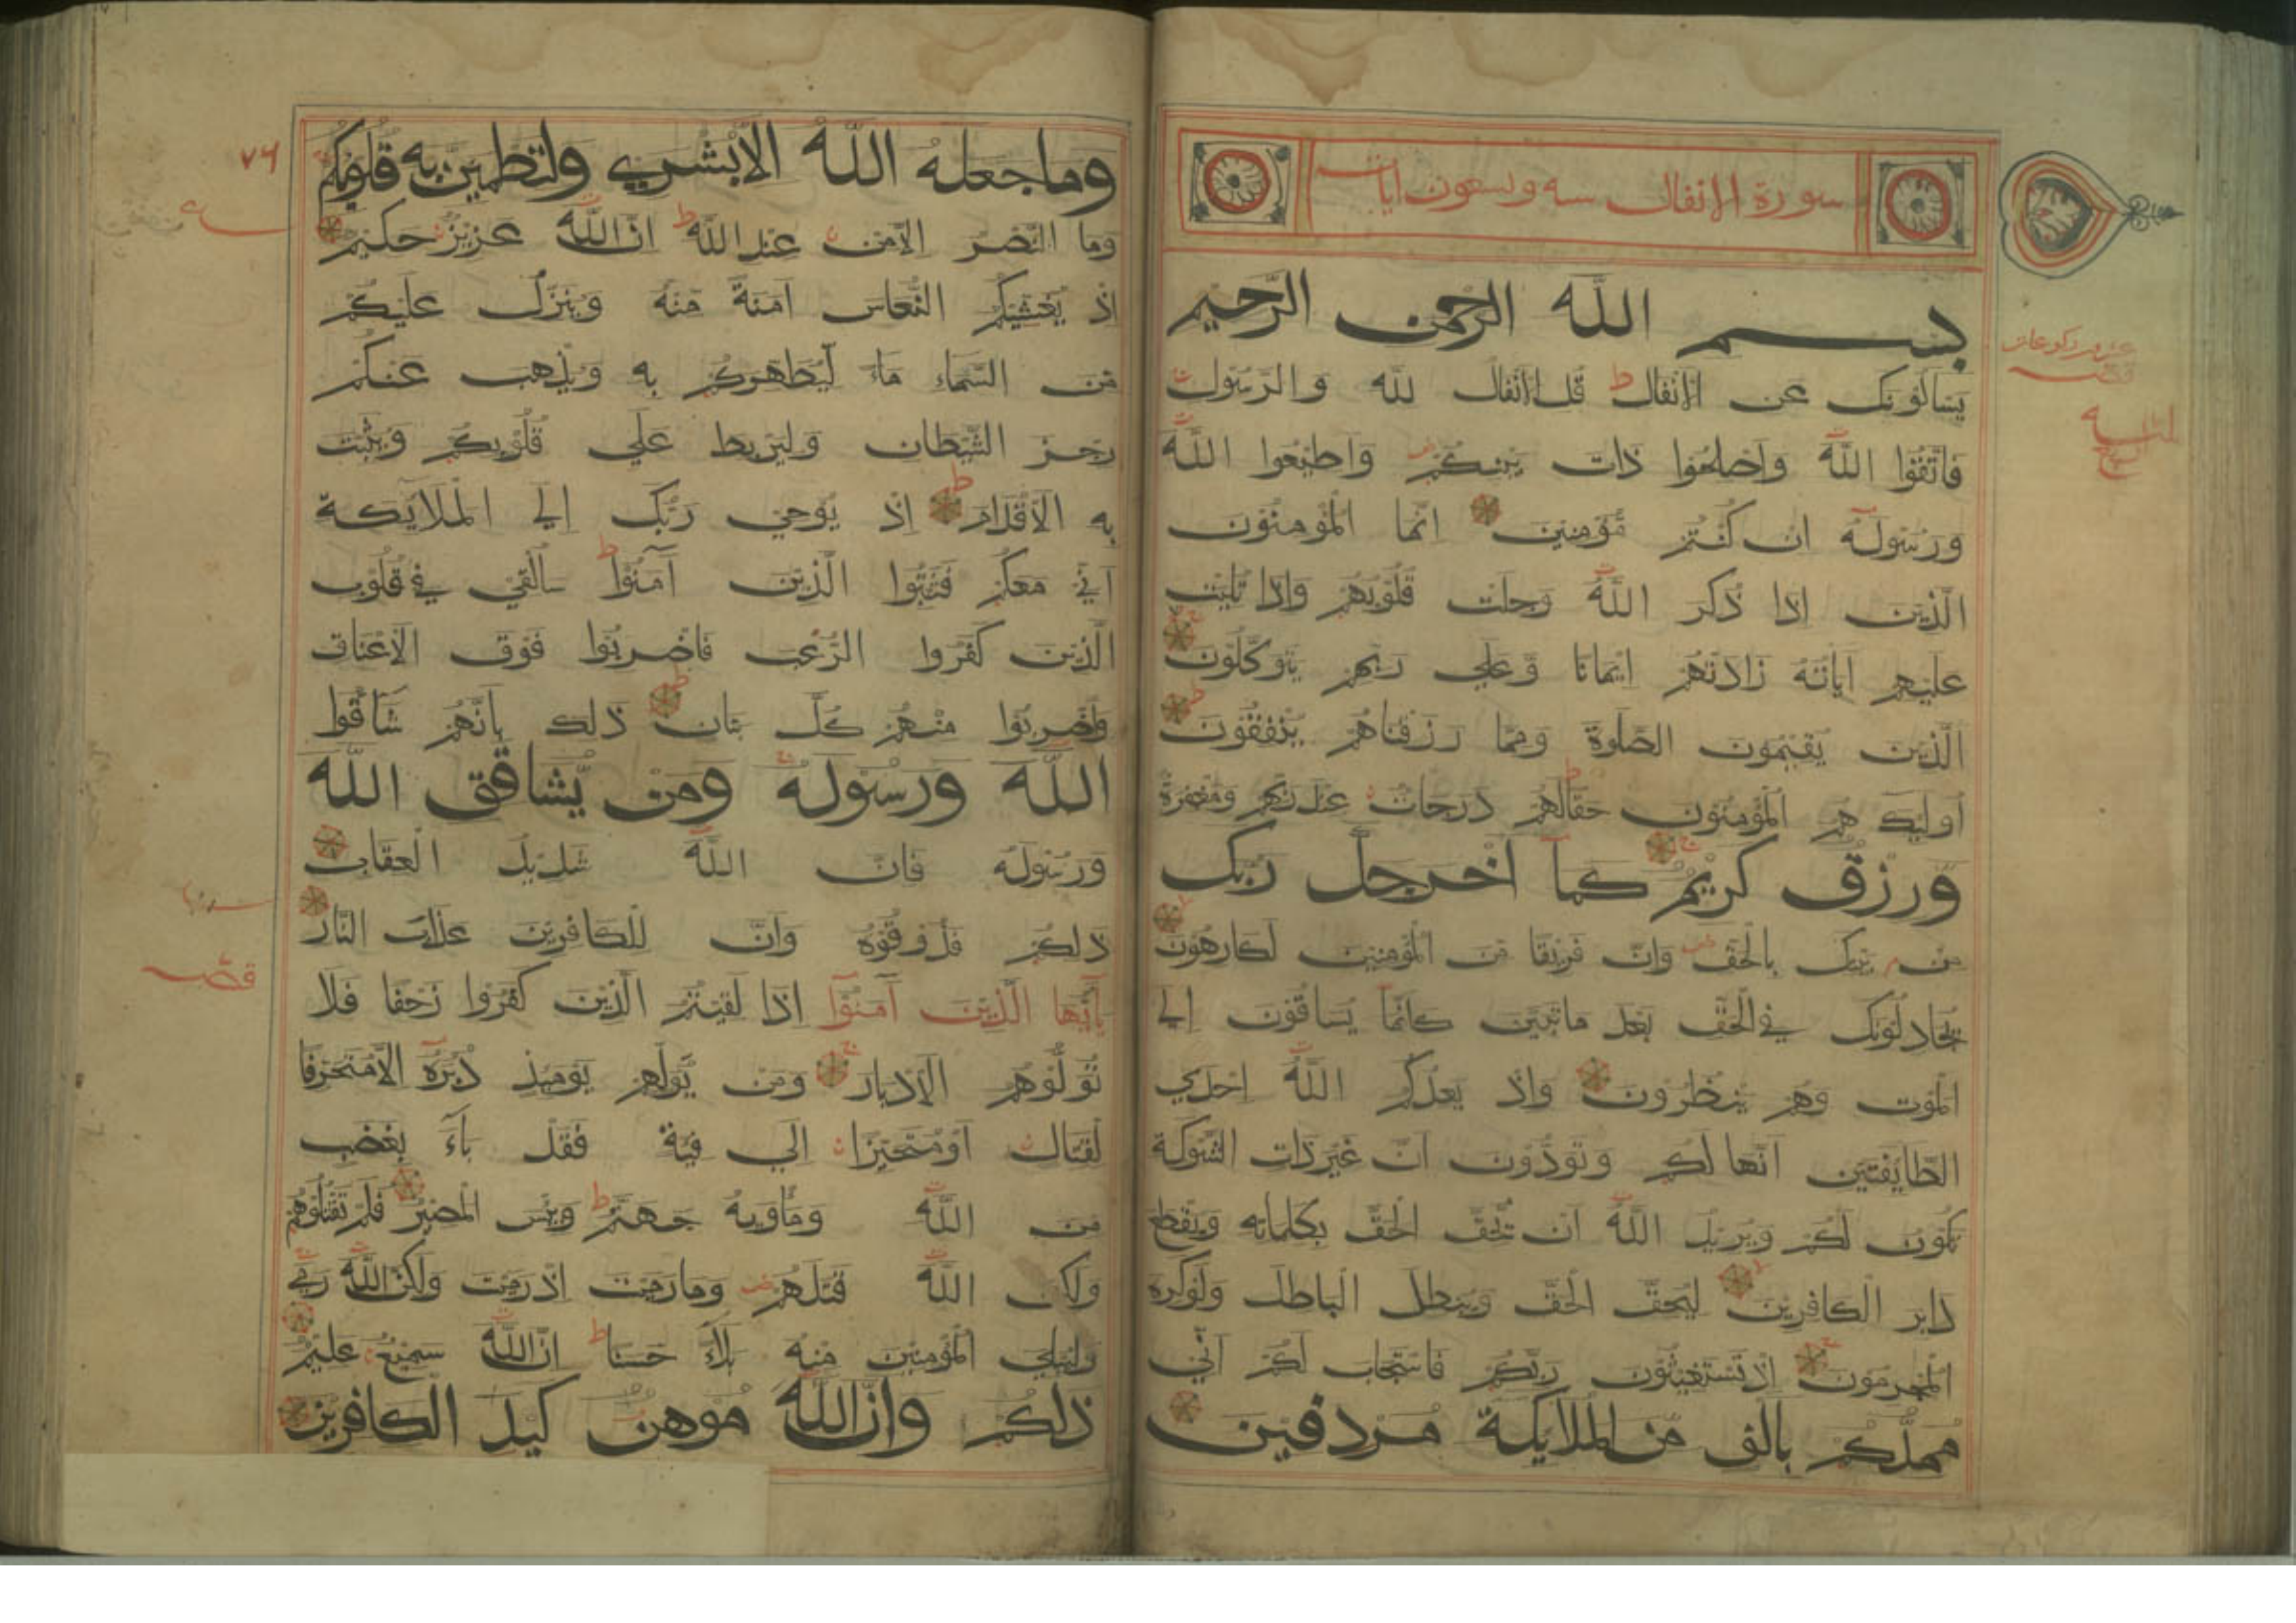 سورة الانفال سه وسبعون ايات
بسم الله الرحمن الرحيم
يسالونك عن الانفال قل الانفال لله والرسول
فاتقوا الله واصلحوا ذات بينكم واطيعوا الله
ورسوله ان كنتم مؤمنين انما المؤمنون
الذين اذا ذكر الله وجلت قلوبهم واذا تليت
عليهم اياته زادتهم ايمانا وعلي ربهم يتوكلون
الذين يقيمون الصلوة ومما رزقناهم ينفقون
اوليك هم المؤمنون حقا لهم درجات عند ربهم ومغفرة
ورزق كريم كما اخرجك ربك
من بيتك بالحق وان فريقا من المؤمنين لكارهون
يجادلونك في الحق بعد ما تبين كانما يساقون الي
الموت وهم ينظرون واذ يعدكم الله احدي
الطايفتين انها لكم وتودون ان غير ذات الشوكة
تكون لكم ويريد الله ان يحق الحق بكلماته ويقطع
دابر الكافرين ليحق الحق ويبطل الباطل ولوكره
المجرمون اذ تستغيثون ربكم فاستجاب لكم اني
ممدكم بالف من الملايكة مردفين
وما جعله الله الا بشري ولتطمين به قلوبكم
وما النصر الا من عند الله ان الله عزيز حكيم
اذ يغشيكم النعاس امنة منه وينزل عليكم
من السماء ماء ليطهركم به ويذهب عنكم
رجز الشيطان وليربط علي قلوبكم ويثبت
به الاقدام اذ يوحي ربك الي الملايكة
اني معكم فثبتوا الذين آمنوا سالقي في قلوب
الذين كفروا الرعب فاضربوا فوق الاعناق
واضربوا منهم كل بنان ذلك بانهم شاقوا
الله ورسوله ومن يشاقق الله
ورسوله فان الله شديد العقاب
ذلكم فذوقوه وان للكافرين عذاب النار
يايها الذين آمنوا اذا لقيتم الذين كفروا زحفا فلا
تولوهم الادبار ومن يولهم يوميذ دبره الا متحرفا
لقتال او متحيزا الي فية فقد باء بغضب
من الله وماويه جهنم وبيس المصير فلم تقتلوهم
ولكن الله قتلهم وما رميت اذ رميت ولكن الله رمي
وليبلي المؤمنين منه بلاء حسنا ان الله سميع عليم
ذلكم وان الله موهن كيد الكافرين